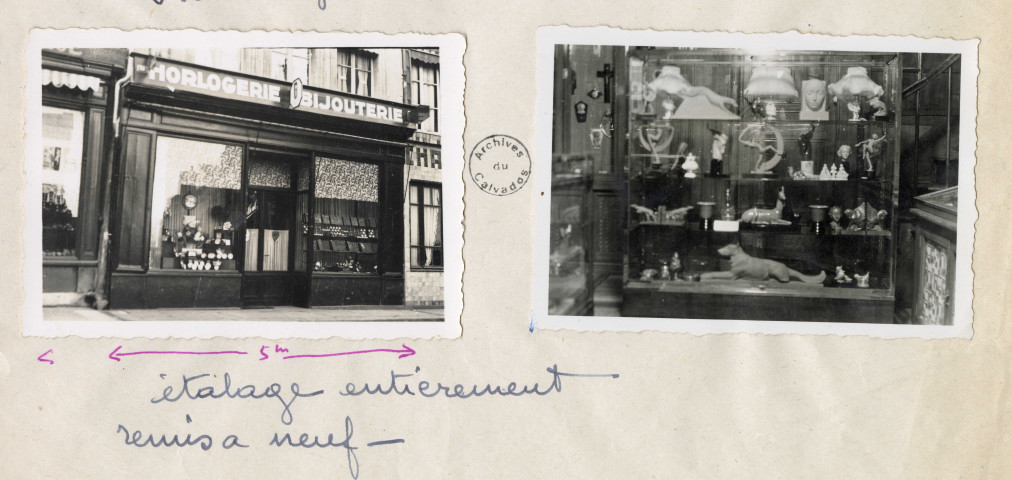 HORLOGERIE BIJOUTERIE
Archives
du
Calvados
5m
étalage entièrement
remis a neuf —